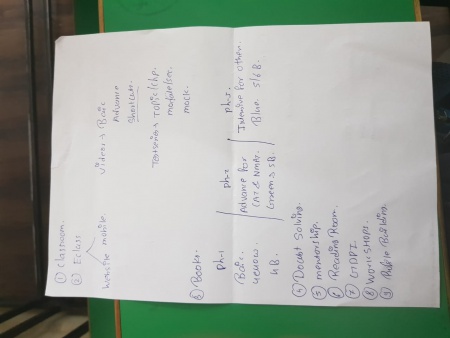 ① Classroom.
② Eclass
website mobile.
Videos → Basic
Advance
Shortcuts.
Testseries → Topic/chp.
module/sec.
mock.
③ Books.
Ph-1
Basic.
Yellow.
4B.
Ph-2
Advance for
CAT & NMAT.
Green → 5B.
Ph-3.
Intensive for other.
Blue. 5/6 B.
④ Doubt Solving.
⑤ mentorship.
⑥ Reading Room.
⑦ GDPI.
⑧ Workshops.
⑨ Profile Building.